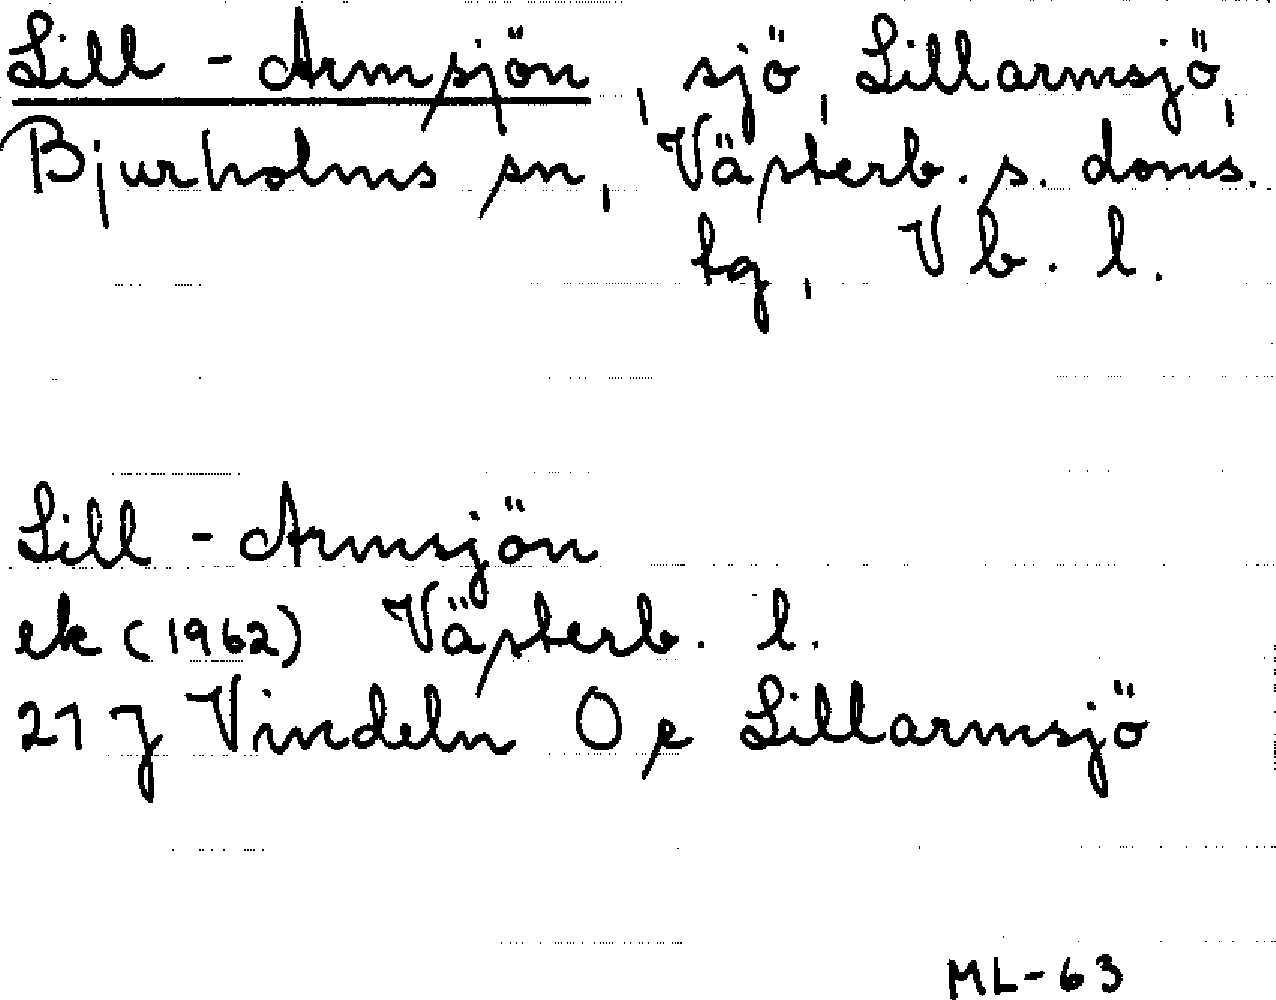 Lill-Armsjön, sjö, Lillarmsjö,
Bjurholms sn, Västerb. s. doms.
tg, Vb. l.
Lill-Armsjön
ek (1962) Västerb. l.
21 J Vindeln O e Lillarmsjö
ML-63